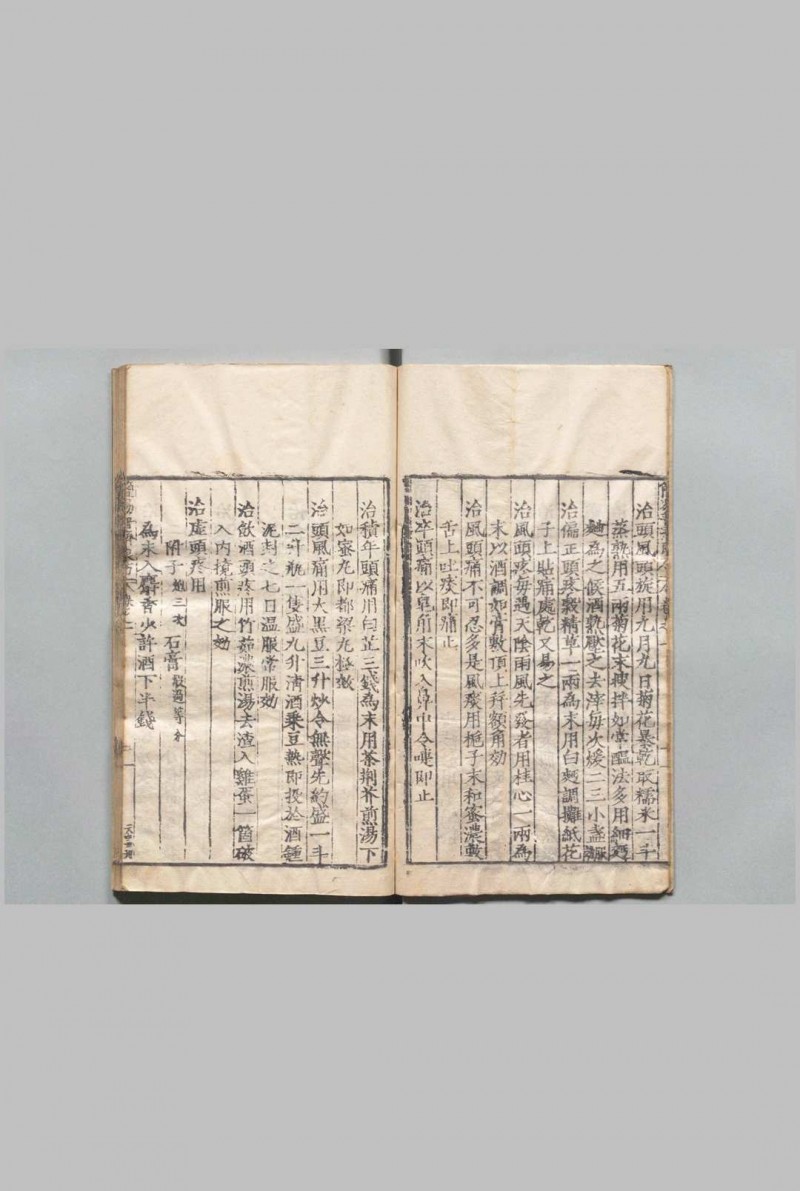 治頭風頭旋用九月九日菊花暴乾取糯米一斗
蒸熟用五兩菊花末搜拌如常醞法多用細麪
麯為之候酒熟壓之去滓每火煖二三小盞服
治偏正頭疼穀精草一兩為末用白麪調攤紙花
子上貼痛處乾又易之
治風頭疼每遇天陰雨風先發者用桂心一兩為
末以酒調如膏敷頂上并額角効
治風頭痛不可忍多是風痰用梔子末和蜜濃敷
舌上吐痰即痛止
治卒頭痛以皁角末吹入鼻中令嚏即止
治積年頭痛用白芷三錢為末用茶荆芥煎湯下
如蜜丸即都梁丸極效
治頭風痛用大黑豆三升炒令無聲先約盛一斗
二升瓶一隻盛九升清酒乘豆熱即投於酒鍾
泥封之七日温服常服効
治飲酒頭疼用竹茹濃煎湯去渣入雞蛋一箇破
入內攪煎服之効
治虛頭疼用
附子炮三文 石膏煅過等分
為末入麝香少許酒下半錢